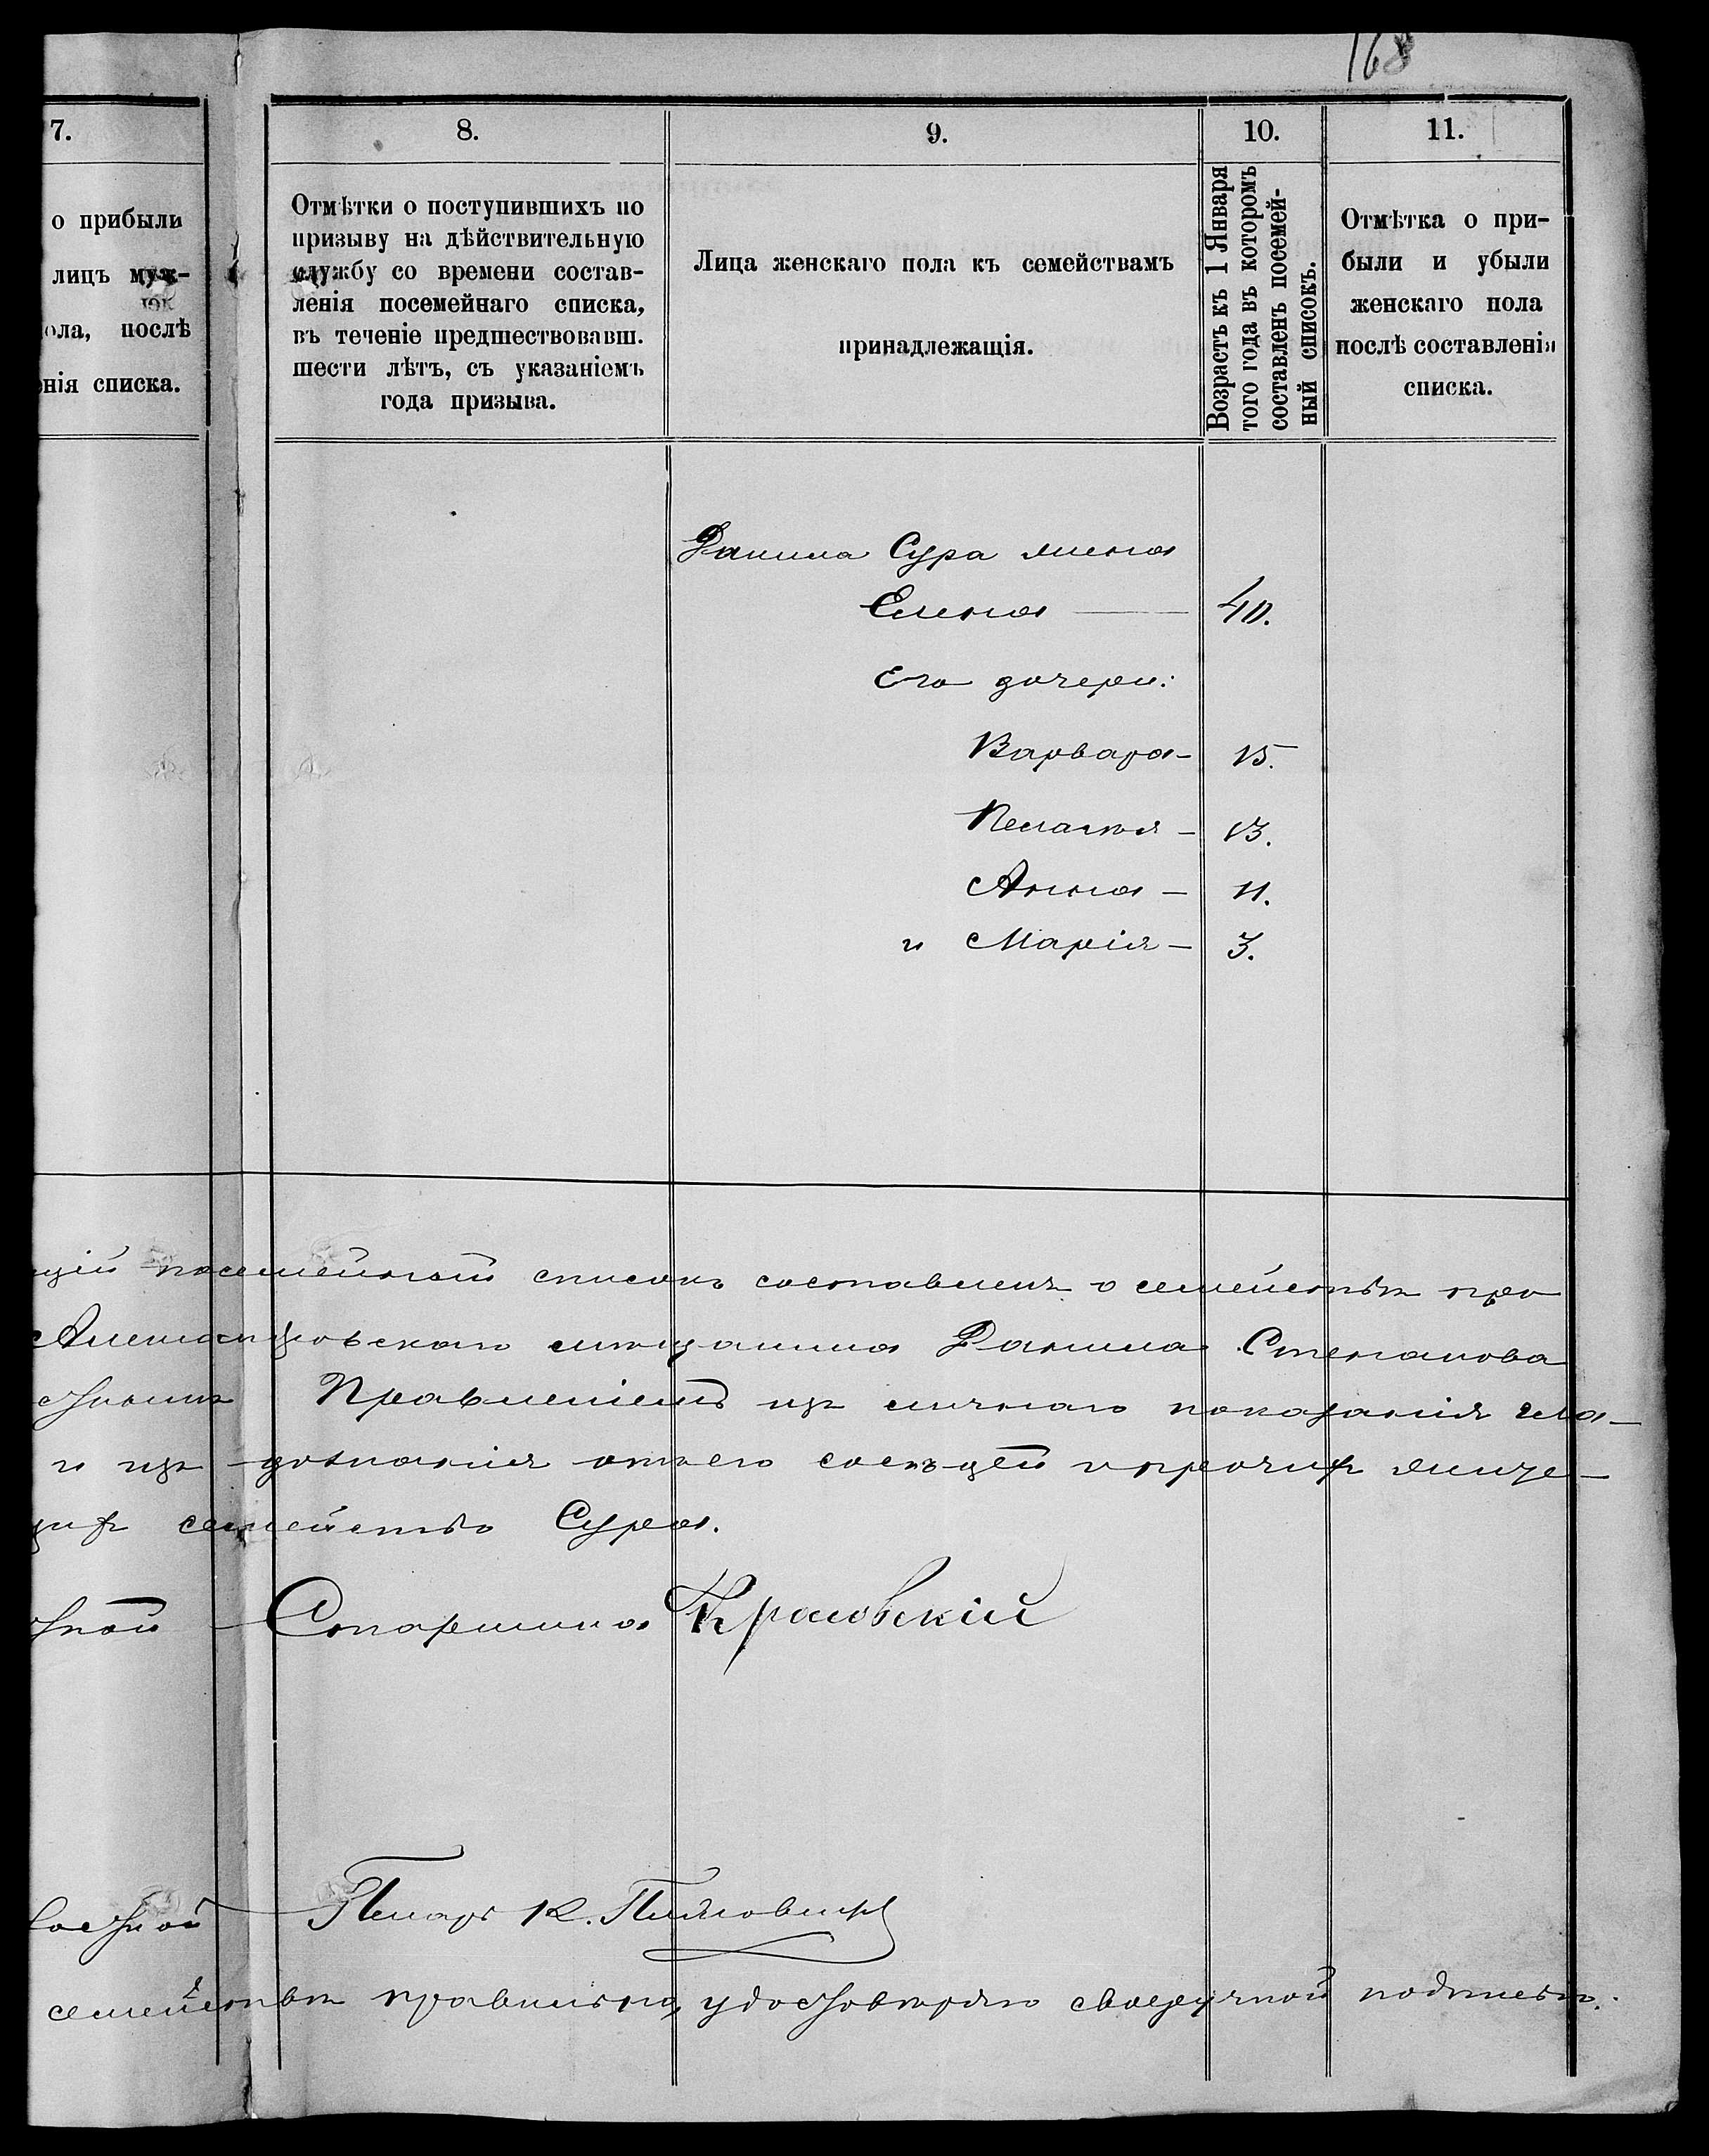 168
7.
о прибыли
лицъ муж-
ола, послѣ
нія списка.
8.
Отмѣтки о поступившихъ по
призыву на дѣйствительную
службу со времени состав-
ленія посемейнаго списка,
въ теченіе предшествовавш.
шести лѣтъ, съ указаніемъ
года призыва.
9.
Лица женскаго пола къ семействамъ
принадлежащія.
10.
Возрастъ къ 1 Января
того года въ которомъ
составленъ посемей-
ный списокъ.
11.
Отмѣтка о при-
были и убыли
женскаго пола
послѣ составленія
списка.
Данила Сура жена
Елена — 40.
Его дочери:
Варвара - 15.
Пелагея - 13.
Анна - 11.
и Марія - 3.
щій посемейный списокъ составленъ о семействѣ про
мѣщанина Данила Степанова
Правленіемъ изъ личнаго показанія
и изъ дознанія отъ его сосѣдей и прочихъ
семейство Сура.
Старшина
Писарь К.
семействѣ правильно, удостовѣряю своеручной подписью.